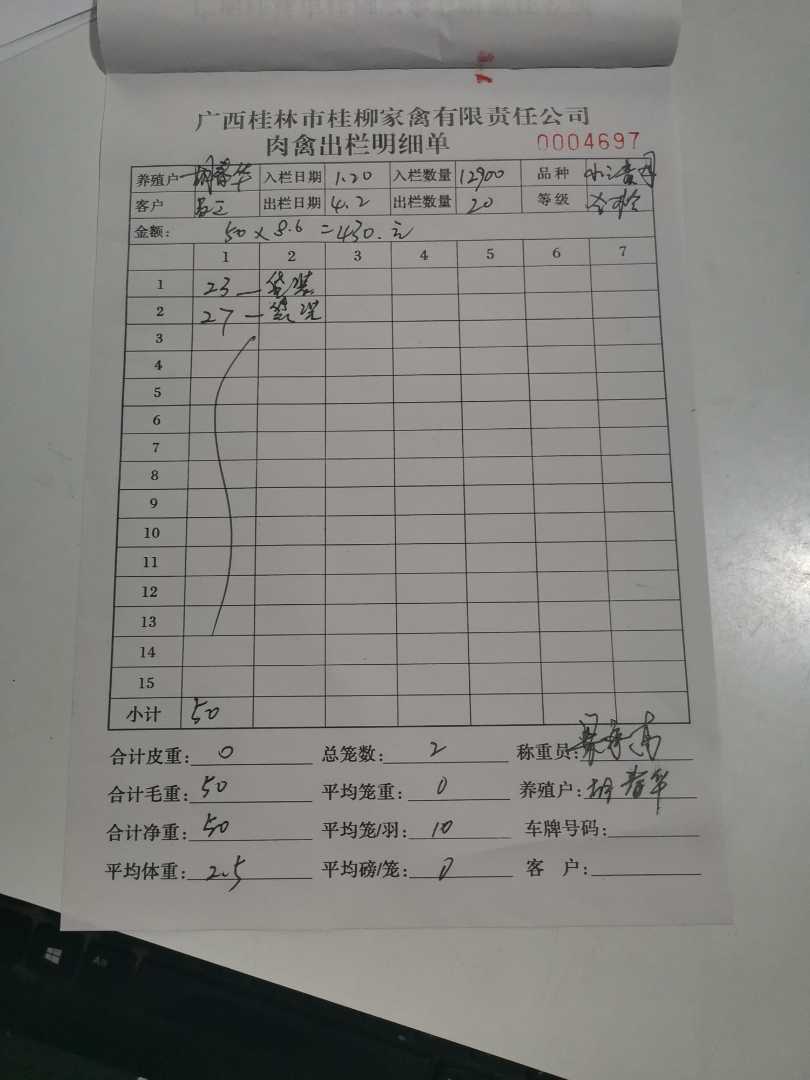 广西桂林市桂柳家禽有限责任公司
肉禽出栏明细单 0004697
养殖户 胡春华 入栏日期 1.20 入栏数量 12900 品种
客户 出栏日期 4.2 出栏数量 20 等级
金额: 50 x 8.6 = 430.元
1 2 3 4 5 6 7
1 23 — 袋装
2 27 — 袋装
3
4
5
6
7
8
9
10
11
12
13
14
15
小计 50
合计皮重: 0 总笼数: 2 称重员:
合计毛重: 50 平均笼重: 0 养殖户: 胡春华
合计净重: 50 平均笼/羽: 10 车牌号码:
平均体重: 2.5 平均磅/笼: 0 客 户: